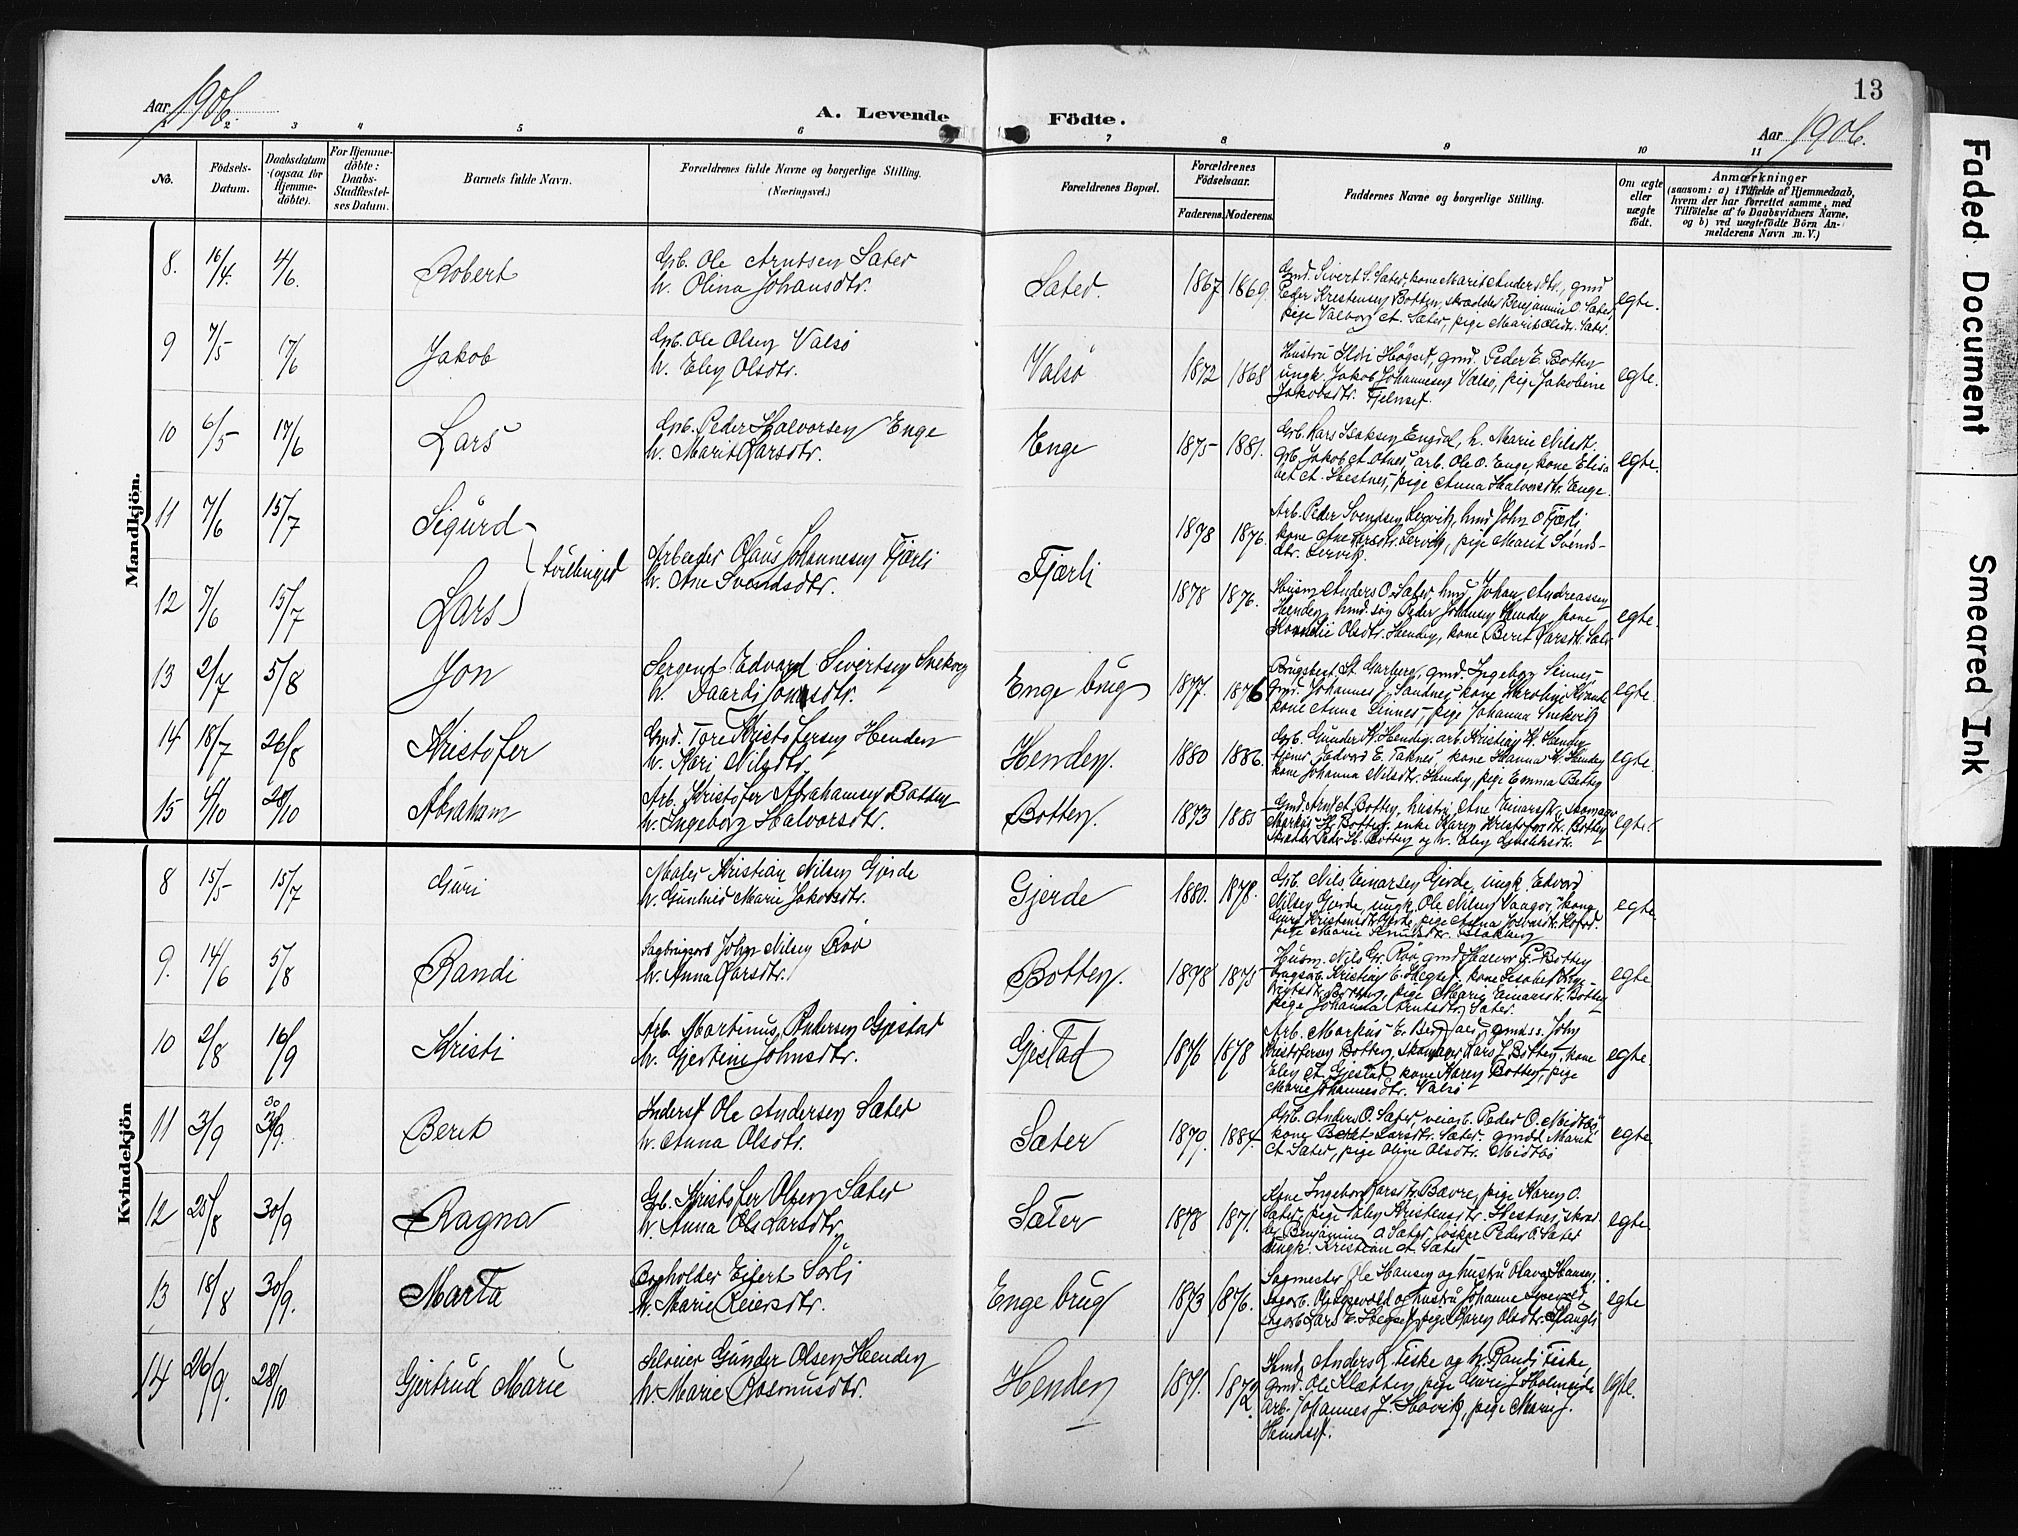 13
Aar 1906. A. Levende Födte. Aar 1906.
1 2 3 4 5 6 7 8 9 10 11
No.
Födsels-
Datum.
Daabsdatum
(ogsaa for
Hjemme-
döbte).
For Hjemme-
döbte:
Daabs-
Stadfæstel-
ses Datum.
Barnets fulde Navn.
Forældrenes fulde Navne og borgerlige Stilling.
(Næringsvei.)
Forældrenes Bopæl.
Forældrenes
Födselsaar.
Faderens. Moderens.
Faddernes Navne og borgerlige Stilling.
Om ægte
eller
uægte
födt.
Anmærkninger
(saasom: a) i Tilfælde af Hjemmedaab,
hvem der har forrettet samme, med
Tilföielse af to Daabsvidners Navne,
og b) ved uægtefödte Börn An-
melderens Navn m. V.)
Mandkjön.
8. 16/4. 4/6. Robert
Grb. Ole Arntsen Sæter
h. Olina Johansdtr.
Sæter. 1867 1869.
Gmd. Sivert S. Sæter, kone Marit Andersdtr., gmd
Peder Kristensen Botten, skrædder Benjamin O. Sæter,
pige Valborg A. Sæter, pige Marit Olsdtr. Sæter.
egte.
9 7/5 17/6 Jakob
Grb. Ole Olsen Valsö
h. Elen Olsdtr.
Valsö 1872 1868
Hustru Ildri Högset, gmd. Peder E. Botten
ungk. Jakob Johannesen Valsö, pige Jakobine
Jakobsdtr. Fjelnset.
egte.
10 6/5 17/6 Lars
Grb. Peder Halvorsen Enge
h. Marit Larsdtr.
Enge 1875 1881.
Grb. Lars Isaksen Engdal, h. Marie Nilsdtr.
Grb. Jakob A. Otnes, arb. Ole O. Enge, kone Elisa
bet A. Hestnes, pige Anna Halvorsdtr. Enge.
egte.
11 7/6 15/7 Sigurd
12 7/6 15/7 Lars
tvillinger
Arbeider Olaus Johannesen Fjærli
h. Ane Svendsdtr.
Fjærli
1878 1876.
Arb. Peder Svendsen Lervik, hmd John O Fjærli,
kone Ane Larsdtr. Lervik, pige Marit Svends-
dtr. Lervik.
1878 1876.
Husm. Anders O. Sæter, hmd Johan Andreassen
Henden, hmd. søn Peder Johansen Henden, kone
Olsdtr. Henden, kone Berit Larsdtr. Sæter
egte.
13 2/7 5/8 Jon
Sergent Edvard Sivertsen Snekvig
h. Jonsdtr.
Enge brug 1877. 1876
Brugsbest. St. Garberg, gmd. Ingeborg Sinnes,
Grd. Johannes J. Sandnes, kone Karoline Kvande
kone Anna Sinnes, pige Johanna Snekvik
egte.
14 18/7 26/8 Kristofer
Gmd. Tore Kristofersen Henden
h. Kari Nilsdtr.
Henden. 1880 1886.
Grb. Gunder K. Henden. arb. Kristian K. Henden
tjener Edvard E. Taknes, kone Hanna K. Henden
kone Johanna Nilsdtr. Henden, pige Emma Botten
egte.
15 4/10 28/10 Abraham
Arb. Kristofer Abrahamsen Botten
h. Ingeborg Halvorsdtr.
Botten. 1873 1885
Gmd. Arnt A. Botten, hustru Ane Einarsdtr, skomager
Markus H. Botten, enke Karen Kristofersdtr. Botten
Skrædder Peder H. Botten og h. Elen
egte.
Kvindekjön
8 15/5 15/7 Guri
Maler Kristian Nilsen Gjerde
h. Gunhild Marie Jakobsdtr.
Gjerde 1880. 1878.
Grb. Nils Einarsen Gjerde, ungk. Edvard
Nilsen Gjerde, ungk. Ole Nilsen Vaagos, kone
Guri Kristensdtr Gjerde, pige Anna
pige Marie Knutsdtr.
egte
9. 14/6 5/8 Randi
Sagbrugsarb. John Nilsen Röv
h. Anna Larsdtr.
Botten. 1878 1875
Husm. Nils Gr. Röv gmd Halvor G. Botten
Kristian E. Hegset, kone Lisabet
Botten, pige Marie Einarsdtr. Botten
pige Johanna Arntsdtr. Sæter.
egte
10 2/8 16/9 Kristi
Arb. Martinus Andersen Gjestad
h. Gjertine Johnsdtr.
Gjestad 1876 1878
Arb. Markus E. gmdss. John
Kristofersen Botten, skomager Lars J. Botten, kone
Elen A. Gjestad, kone Karen Botten, pige
Marie Johannesdtr. Valsö
egte.
11 3/9 30/9. Berit
Inderst Ole Andersen Sæter
h. Anna Olsdtr.
Sæter 1879. 1884.
Grb. Anders O. Sæter, veiarb. Peder O. Midtöi
kone Beret Larsdtr. Sæter. gmd. Marit
A. Sæter, pige Oline Olsdtr. Midtöi
egte
12 25/8 30/9 Ragna
Gb. Kristofer Olsen Sæter
h. Anna Ols Larsdtr.
Sæter 1878 1871.
Kone Ingeborg Larsdtr. Bævre, pige Karen O.
Sæter, pige Elen Kristensdtr. Hestnes, skræd
der Benjamin O. Sæter, fisker Peder O. Sæter
ungk. Kristian A. Sæter
egte
13 18/8 30/9. Marta
Bogholder Ejlert Sörli
h. Marie Reiersdtr.
Enge brug 1873 1876.
Sagmester Ole Hansen og hustru Olava Hansen.
Sagarb. O. Sjøvold og hustru Johanne Sjøvold,
Sagarb. Lars E. Hegset, pige Karen Olsdtr.
egte
14 26/9. 28/10 Gjertrud Marie
Selveier Gunder Olsen Henden
h. Marie Rasmusdtr.
Henden 1871. 1872.
Hmd. Anders L. Fiske og h. Randi Fiske,
gmd. Ole Kletten, pige Guri J. Holmeide
arb. Johannes J. Skovik, pige Maren J.
Hendset.
egte.
Faded Document
Smeared Ink